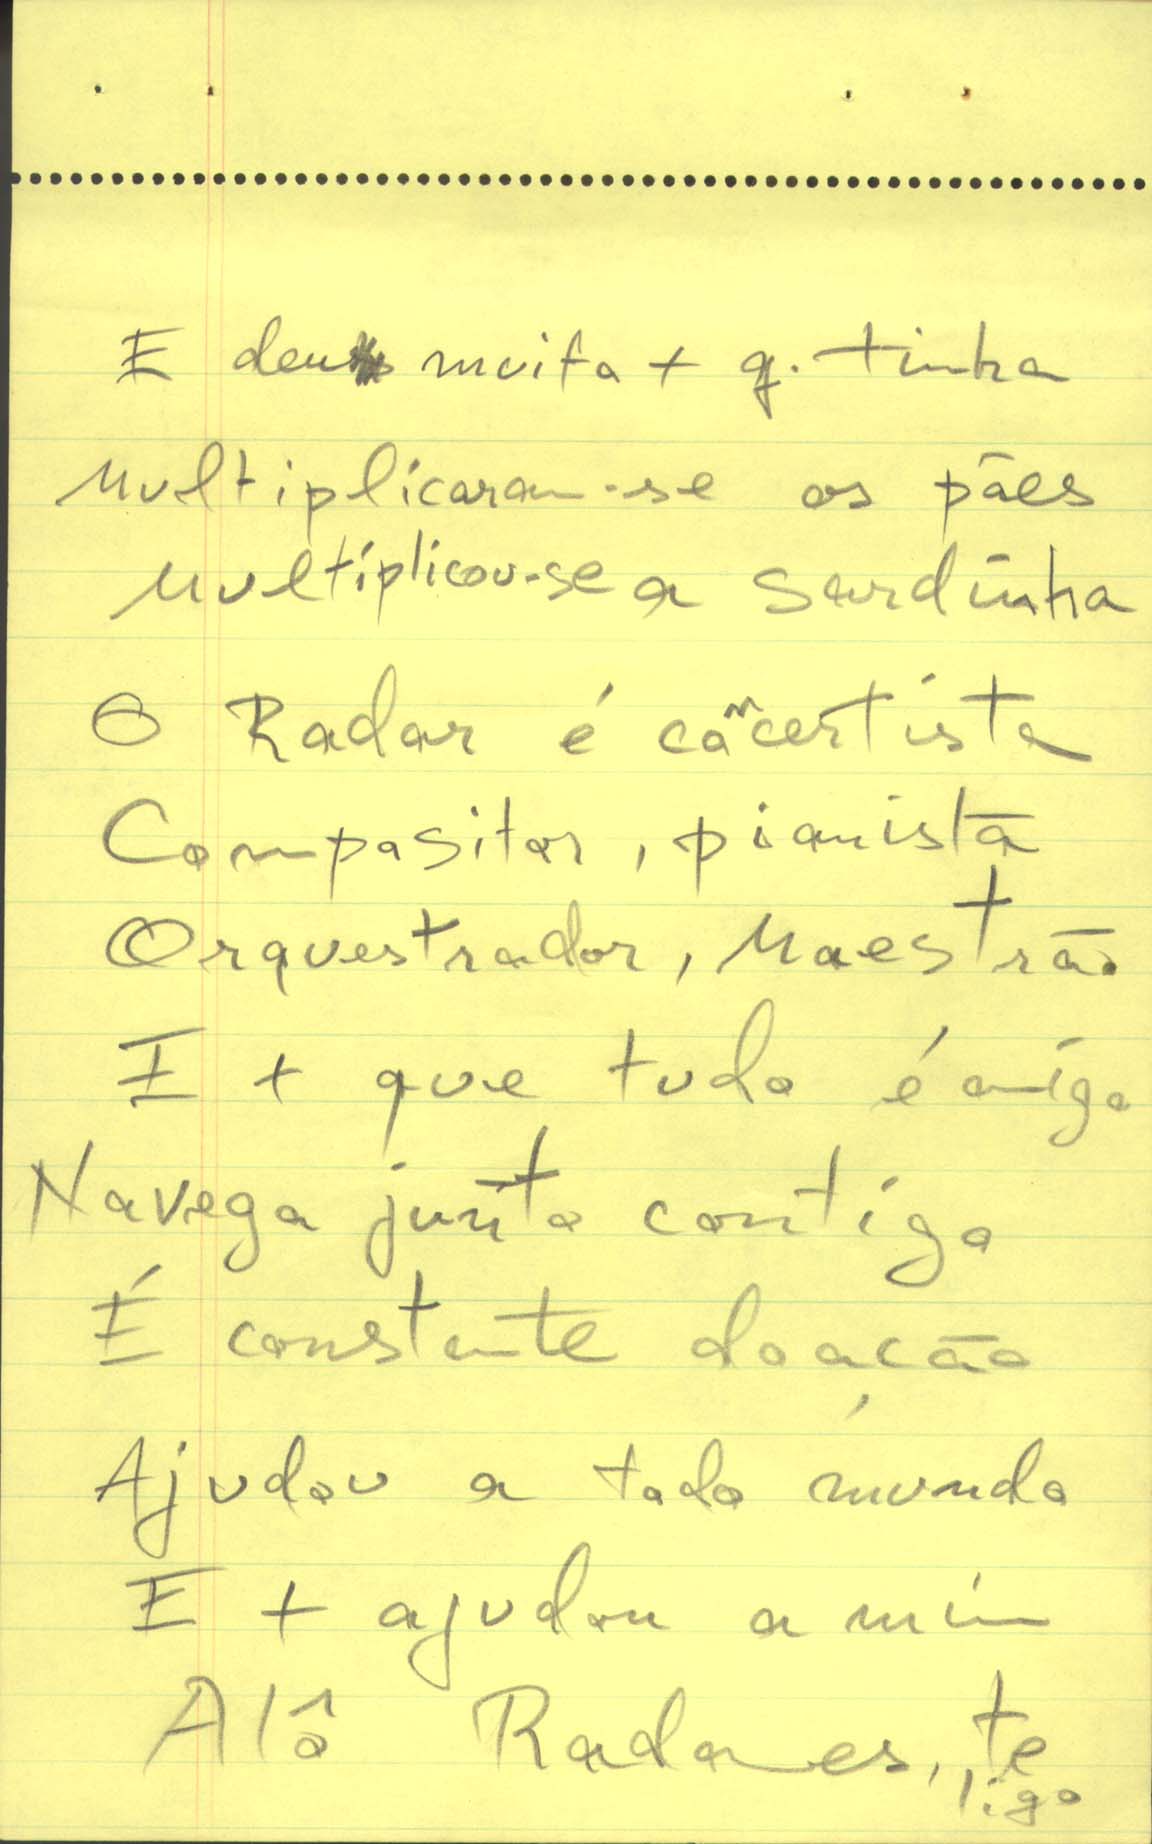 E deu muito + q. tinha
Multiplicaram-se os pães
Multiplicou-se a sardinha
O Radar é concertista
Compositor, pianista
Orquestrador, Maestrão
E + que tudo é amigo
Navega junto contigo
É constante doação
Ajudou a todo mundo
E + ajudou a mim
Alô Radares, te
ligo